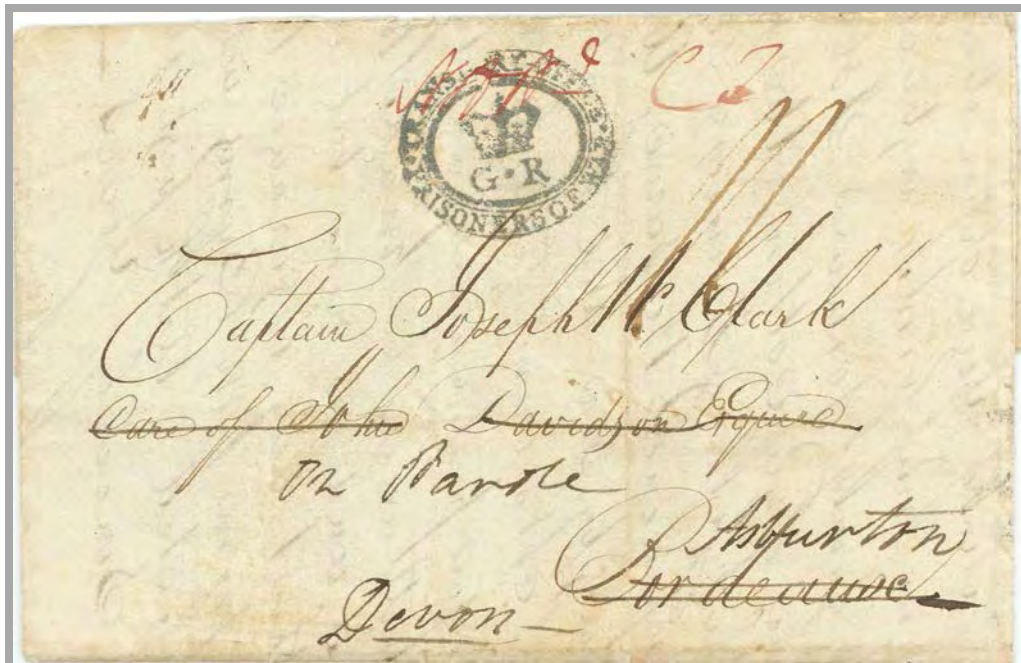 TRANSPORT OFFICE
PRISONERS OF WAR
G·R
11
Captain Joseph W. Clark
Care of John Davidson Esquire
On Parole
Ashburton
Bordeaux
Devon